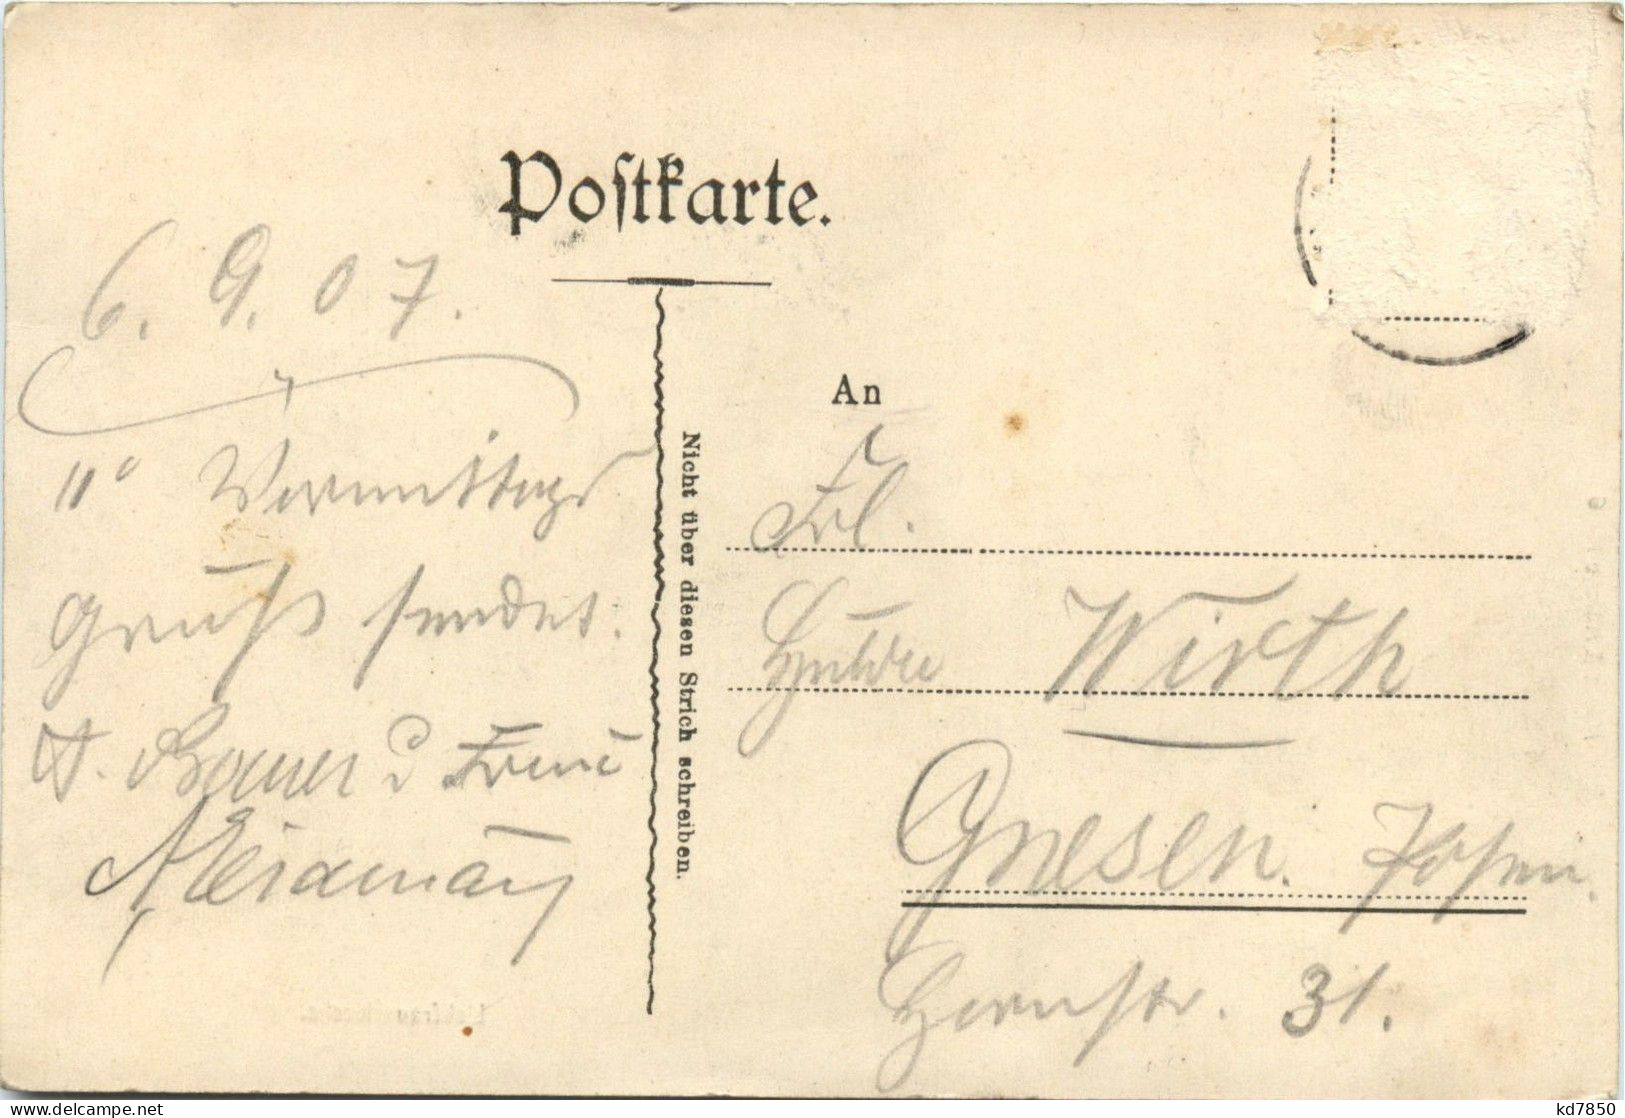 Postkarte.
6. 9. 07.
11° Vormittags
Gruß sendet.
Bauer & Frau
An
Frl.
Wirth
Gnesen. Posen.
Hornstr. 31.
Nicht über diesen Strich schreiben.
kd7850